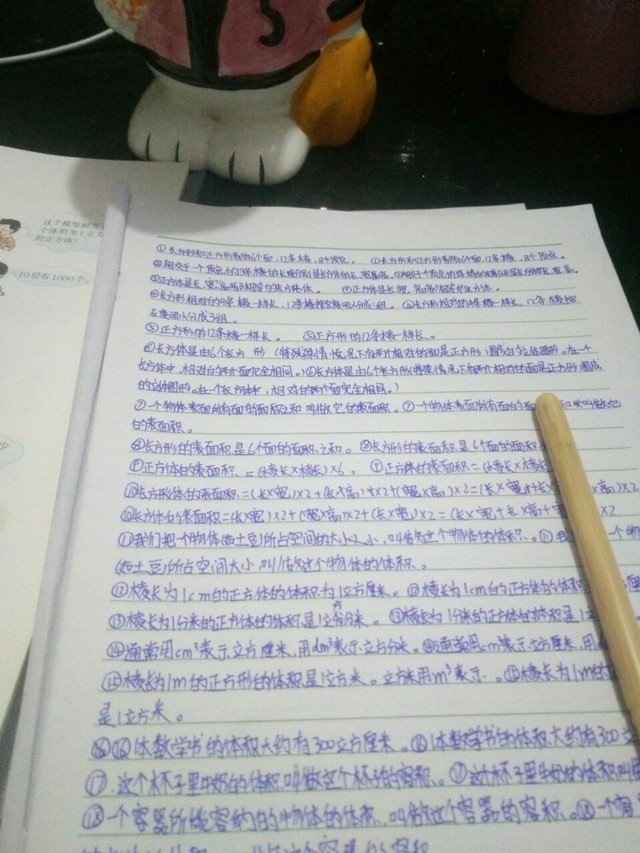 这个模型
个体积为1立方
的正方体?
10层有1000个。
①长方形和正方形都有6个面,12条棱,8个顶点。 ①长方形和正方形都有6个面,12条棱,8个顶点。
②相交于一个顶点的3条棱的长度分别是长方体的长、宽、高。
③正方体是长、宽、高 ③正方体是长、宽、高
④长方形相对的4条棱一样长,12条棱 可以分成3组。 ④长方形相对的4条棱一样长,12条
可以分成3组。
⑤正方形的12条棱一样长。 ⑤正方形的12条棱一样长。
⑥长方体是由6个长方形(特殊情况下有两个相对的面是正方形)围成的立体图形。在一个
长方体中,相对的两个面完全相同。)⑥长方体是由6个长方形(特殊情况下有两个相对的面是正方形)围成
的立体图形。在一个长方体中,相对的两个面完全相同。)
⑦一个物体表面所有面的面积之和叫做它的表面积。⑦一个物体表面所有面的面 叫做它
的表面积。
⑧长方形的表面积是6个面的面积之和。 ⑧长方形的表面积是6个面的面积
⑨正方体的表面积=(棱长×棱长)×6。 ⑨正方体的表面积=(棱长×棱长
⑩长方形体的表面积=(长×宽)×2+(长×高)×2+(宽×高)×2=(长×宽+长× ×高)×2
⑩长方体的表面积=(长×宽)×2+(宽×高)×2+(长×宽)×2=(长×宽+长×高+宽 ×2
⑪我们把一个物体(如土豆)所占空间的大小,叫做这个物体的体积。⑪我 一个物
(如土豆)所占空间大小叫做这个物体的体积。
⑫棱长为1cm的正方体的体积为1立方厘米。⑫棱长为1cm的正方体的体积
⑬棱长为1分米的正方体的体积是1立方分米。⑬棱长为1分米的正方体的体积是1立
⑭通常用cm³表示立方厘米,用dm³表示立方分米。⑭通常用cm³表示立方厘米,用d
⑮棱长为1m的正方形的体积是1立方米。立方米用m³表示。⑮棱长为1m的
是1立方米。
⑯⑯1本数学书的体积大约有300立方厘米。⑯1本数学书的体积大约有300立
⑰这个杯子里牛奶的体积叫做这个杯子的容积。⑰这个杯子里牛奶的体积叫
⑱一个容器所能容纳的物体的体积,叫做这个容器的容积。⑱一个容